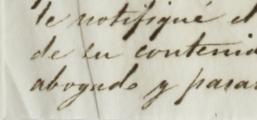 le notifiqué el
de su contenid
abogado y pasar